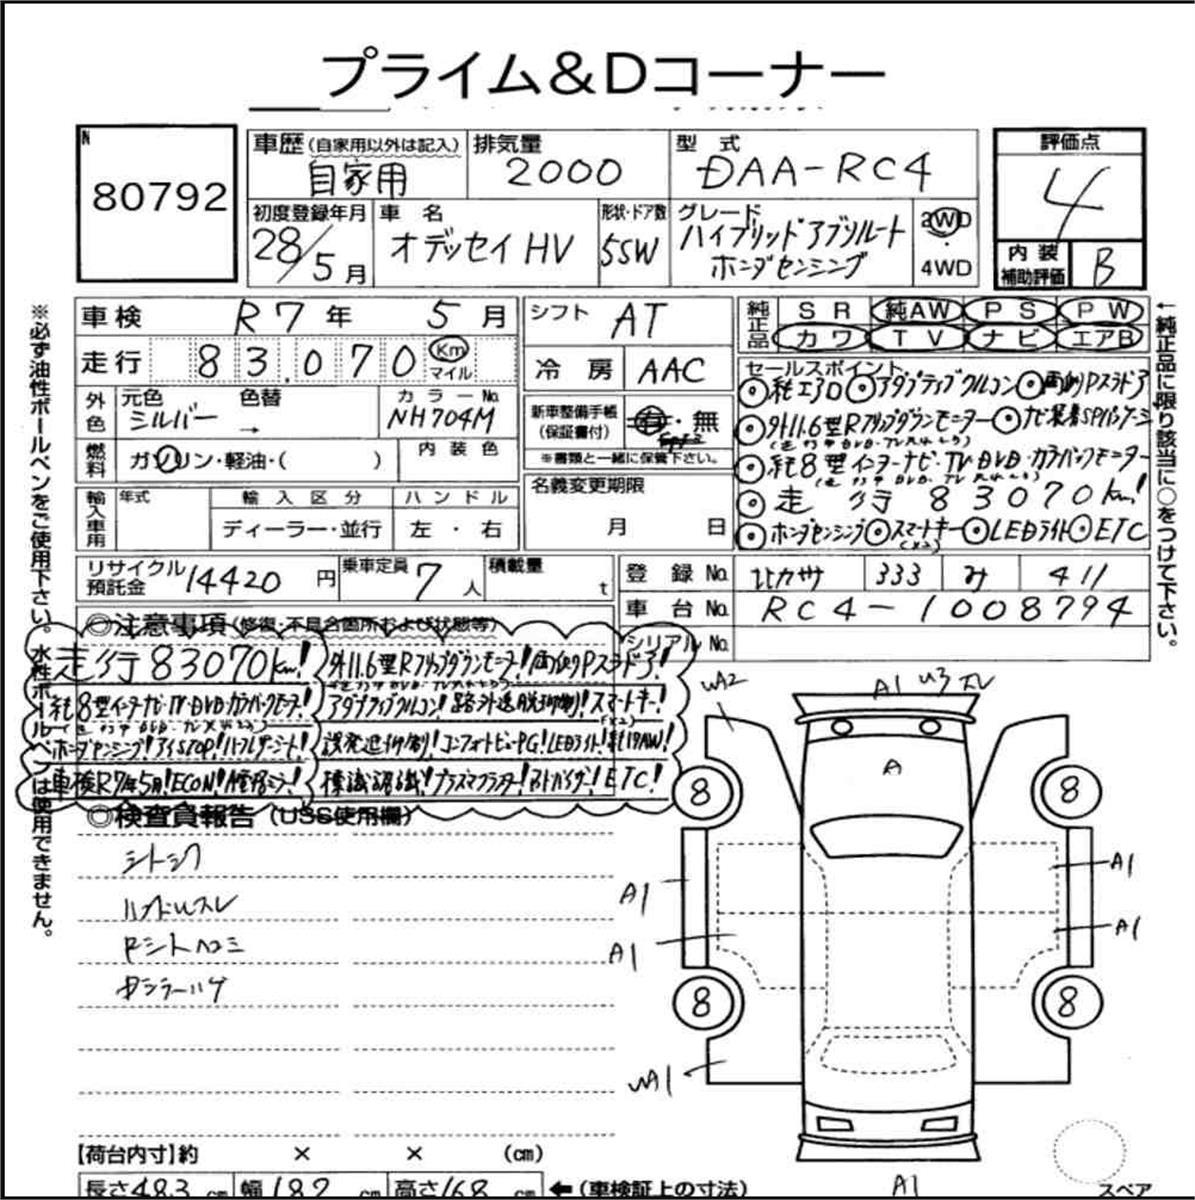 プライム＆Dコーナー
N
80792
車歴 (自家用以外は記入)
自家用
排気量
2000
型式
DAA-RC4
評価点
4
初度登録年月
28/5月
車名
オデッセイHV
形状・ドア数
5SW
グレード
ハイブリッドアブソルート
ホンダセンシング
2WD
・
4WD
内装
補助評価
B
車検 R7年 5月
走行 83,070 Km マイル
外色
元色 シルバー
色替 →
カラーNo. NH704M
燃料
ガソリン・軽油・( )
内装色
輸入車用
年式
輸入区分
ディーラー・並行
ハンドル
左・右
シフト AT
冷房 AAC
新車整備手帳
(保証書付)
有・無
※書類と一緒に保管下さい。
名義変更期限
月 日
純正品
SR 純AW PS PW
カワ TV ナビ エアB
セールスポイント
◎純エアロ ◎アダプティブクルコン ◎両側Pスラドア
◎外11.6型Rフリップダウンモニター ◎ナビ装着SPパッケージ
◎純8型インターナビ・TV・DVD・カラーバックモニター
◎走行83070km!
◎ホンダセンシング ◎スマートキー(×2) ◎LEDライト ◎ETC
←純正品に限り該当に○をつけて下さい。
※必ず油性ボールペンをご使用下さい。水性ボールペンは使用できません。
リサイクル
預託金 14420円
乗車定員 7人
積載量 t
登録No. 333 み 411
車台No. RC4-1008794
シリアルNo.
◎注意事項(修復・不具合箇所および状態等)
走行83070km! 外11.6型Rフリップダウンモニター! 両側Pスラドア!
純8型インターナビ・TV・DVD・カラーバックモニター! アダプティブクルコン! 路外逸脱抑制! スマートキー!(×2)
ホンダセンシング! アイSTOP! ハーフレザーシート! 誤発進抑制! コンフォートビューPG! LEDライト! 純17AW!
車検R7年5月! ECON! 標識認識! プラズマクラスター! ETC!
◎検査員報告(USS使用欄)
シートシワ
ハンドルスレ
A1 U3 スレ
UA2
A
8
8
A1
A1
A1
A1
8
8
UA1
A1
スペア
【荷台内寸】約 × × (cm)
長さ483cm 幅182cm 高さ168cm ←(車検証上の寸法)